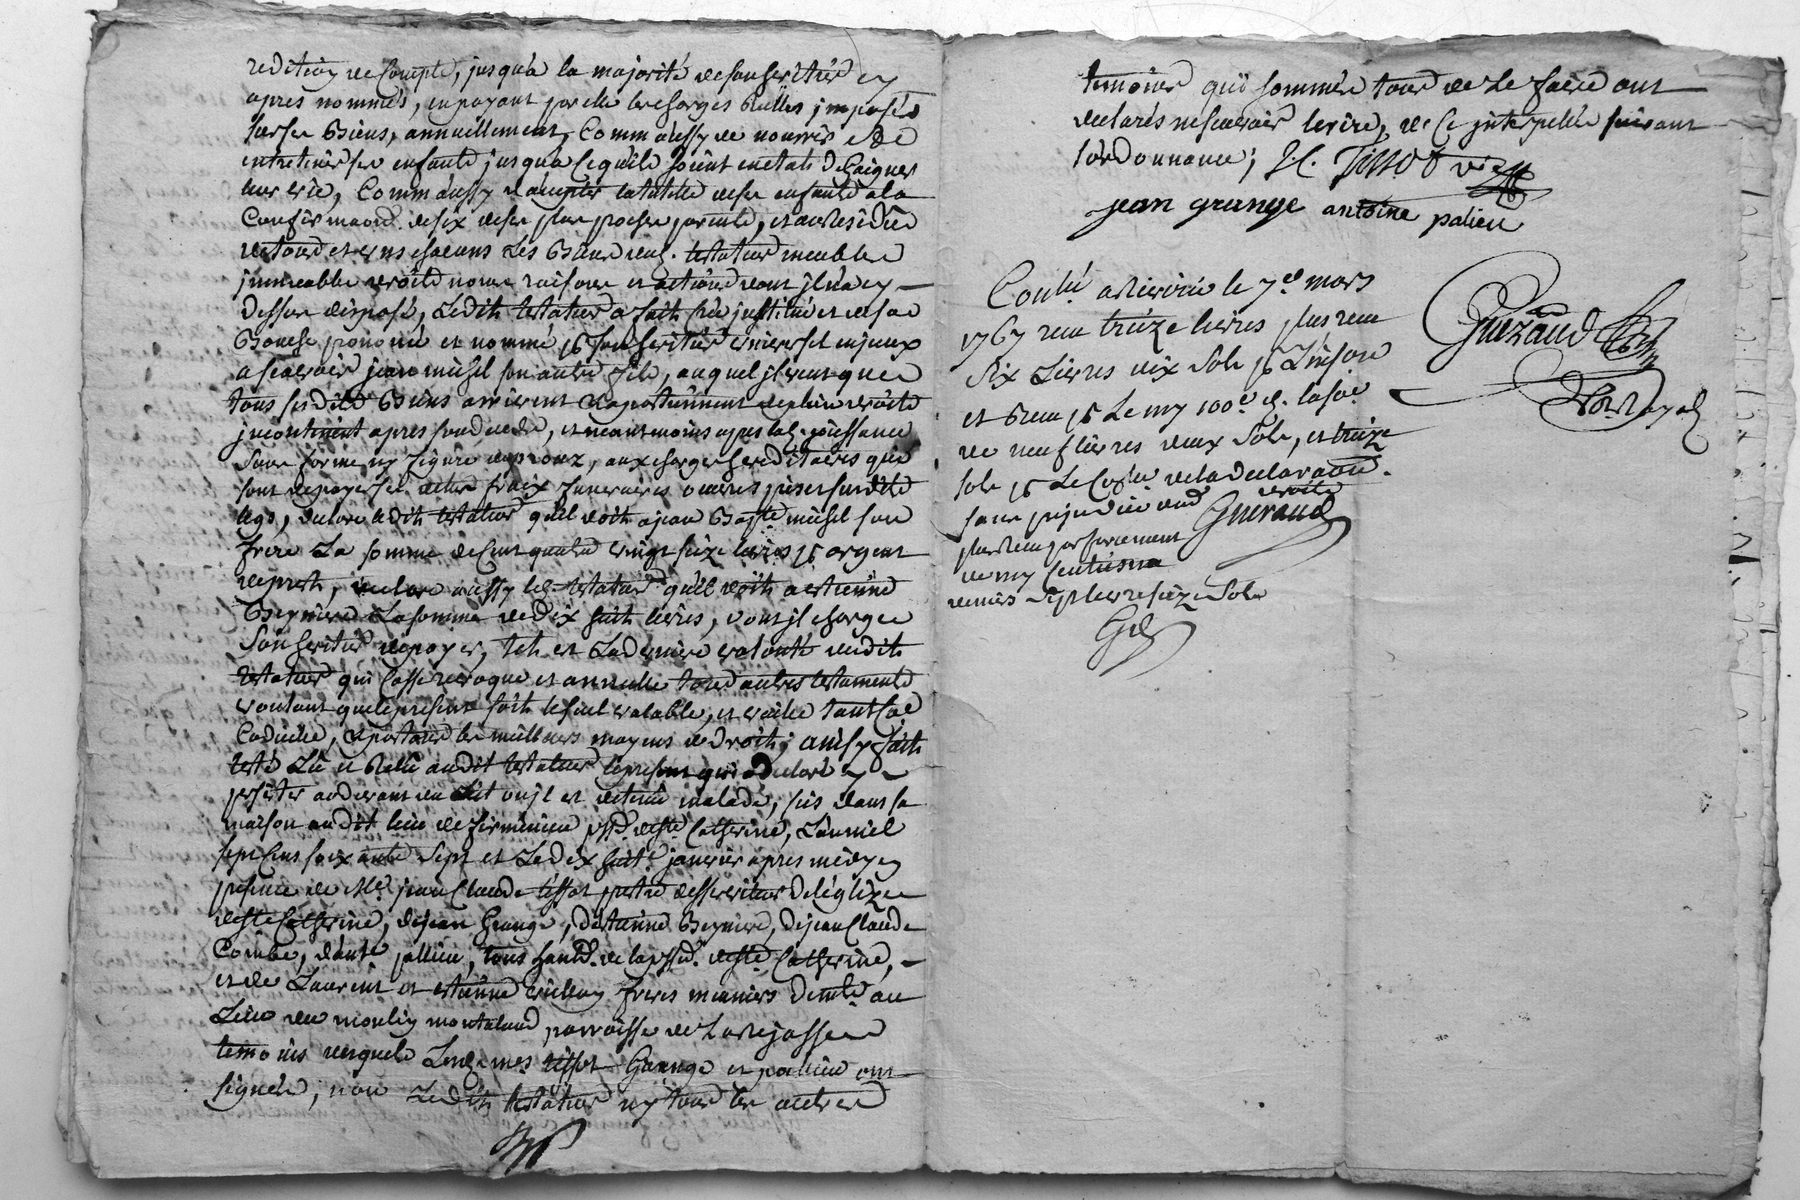 redition de Compte, jusqua la majorité de son heritier cy
apres nommés, en payant par elle les charges imposés
sur ses Biens, annuellement, Comm aussy de nourrir et de
entretenir ses enfants jusqua ce quils soient en etat de gaigner
leur vie, Comm aussy d'accepter la tutelle de ses enfants a la
de six de ses plus proches parents, et au residu
de tous et uns chacuns Les Biens dud. testateur meubles
immeubles droits noms raisons et actions dont il n'a cy
dessus disposé, Ledit testateur a fait institué et de sa
Bouche prononcé et nommé pr son heritier universel
a scavoir jean michel son autre fils, auquel il veut que
tous sesdits Biens arrivent apartiennent de plein droits
jncontinent apres son deceds, et neantmoins apres lad. joüissance
Sans forme ny figure de procez, aux charges hereditaires qui
sont de payer ses dettes fraix funeraires œuvres pies et susdits
legs, declare ledit testateur qu'il doit a jean Bapte michel son
frere La somme de Cent quatre vingt seize livres pr argent
de prest, declare aussy led. testateur qu'il doit a estienne
Beyniere La somme de dix huit livres, dont il charge
Son heritier de payer, tel est La derniere volonté dudit
testateur qui Casse revoque et annulle tous autres testaments
voulant que le present soit le seul valable, et vaille tant
Codicille, que par tous les meilleurs moyens de droit; ainsy fait
testé Lu et Relu audit testateur le present qui a declaré y
persister au devant du Lit ou il est detenu malade, sis dans sa
maison audit lieu de psse. de ste. Catherine, L'an mil
sept Cens soixante Sept et Le dix huite. janvier apres midy en
presence de Mre. jean Claude tissot prestre desserviteur de l'églize
de ste Catherine, de jean Grange, d'estienne Beyniere, de jean Claude
Combe, d'ante pallieu, tous habts. de lad. psse. de ste. Catherine,
et de Laurent et estienne freres meuniers demts. au
Lieu du moulin montaland parroisse de Larajasse
temoins desquels Lesd. mes tissot Grange et pallieu ont
signés, non Ledit testateur ny tous les autres
temoins qui sommés tous de Le faire ont
declarés ne scavoir ecrire, de ce interpellés suivant
l'ordonnance; J. C. Tissot
jean grange antoine palieu
Conlé. a Riverie le 7e. mars
1767 reçu treize livres plus reçu
Six Livres dix Sols pr L'insion
et Reçu pr Le my 100e. d. la soe.
de neuf livres deux Sols, et treize
sols pr Le Cosle de la declaraon.
sans prejudice des droits Gueraud
plus Reçu par suplement
de my Centieme
deniers sept livres seize Sols
Gd
Guezaud
Not. Royal